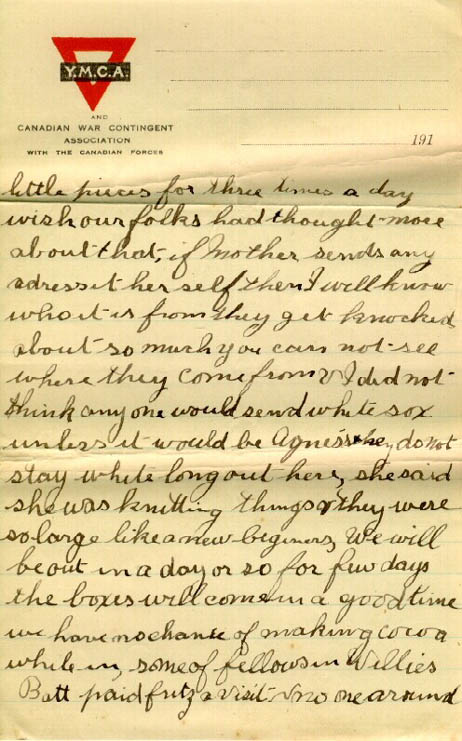 Y.M.C.A.
AND
CANADIAN WAR CONTINGENT
ASSOCIATION
WITH THE CANADIAN FORCES
191
little pieces for three times a day
wish our folks had thought more
about that, if Mother sends any
adress it her self then I will know
who it is from they get knocked
about so much you can not see
where they come from & I did not
think any one would send white sox
unless it would be Agnes they do not
stay white long out here, she said
she was knitting things & they were
so large like a new beginers, We will
be out in a day or so for few days
the boxes will come in a good time
we have no chance of making cocoa
while in, some of fellows in Willies
Batt paid fritz a visit & no one around